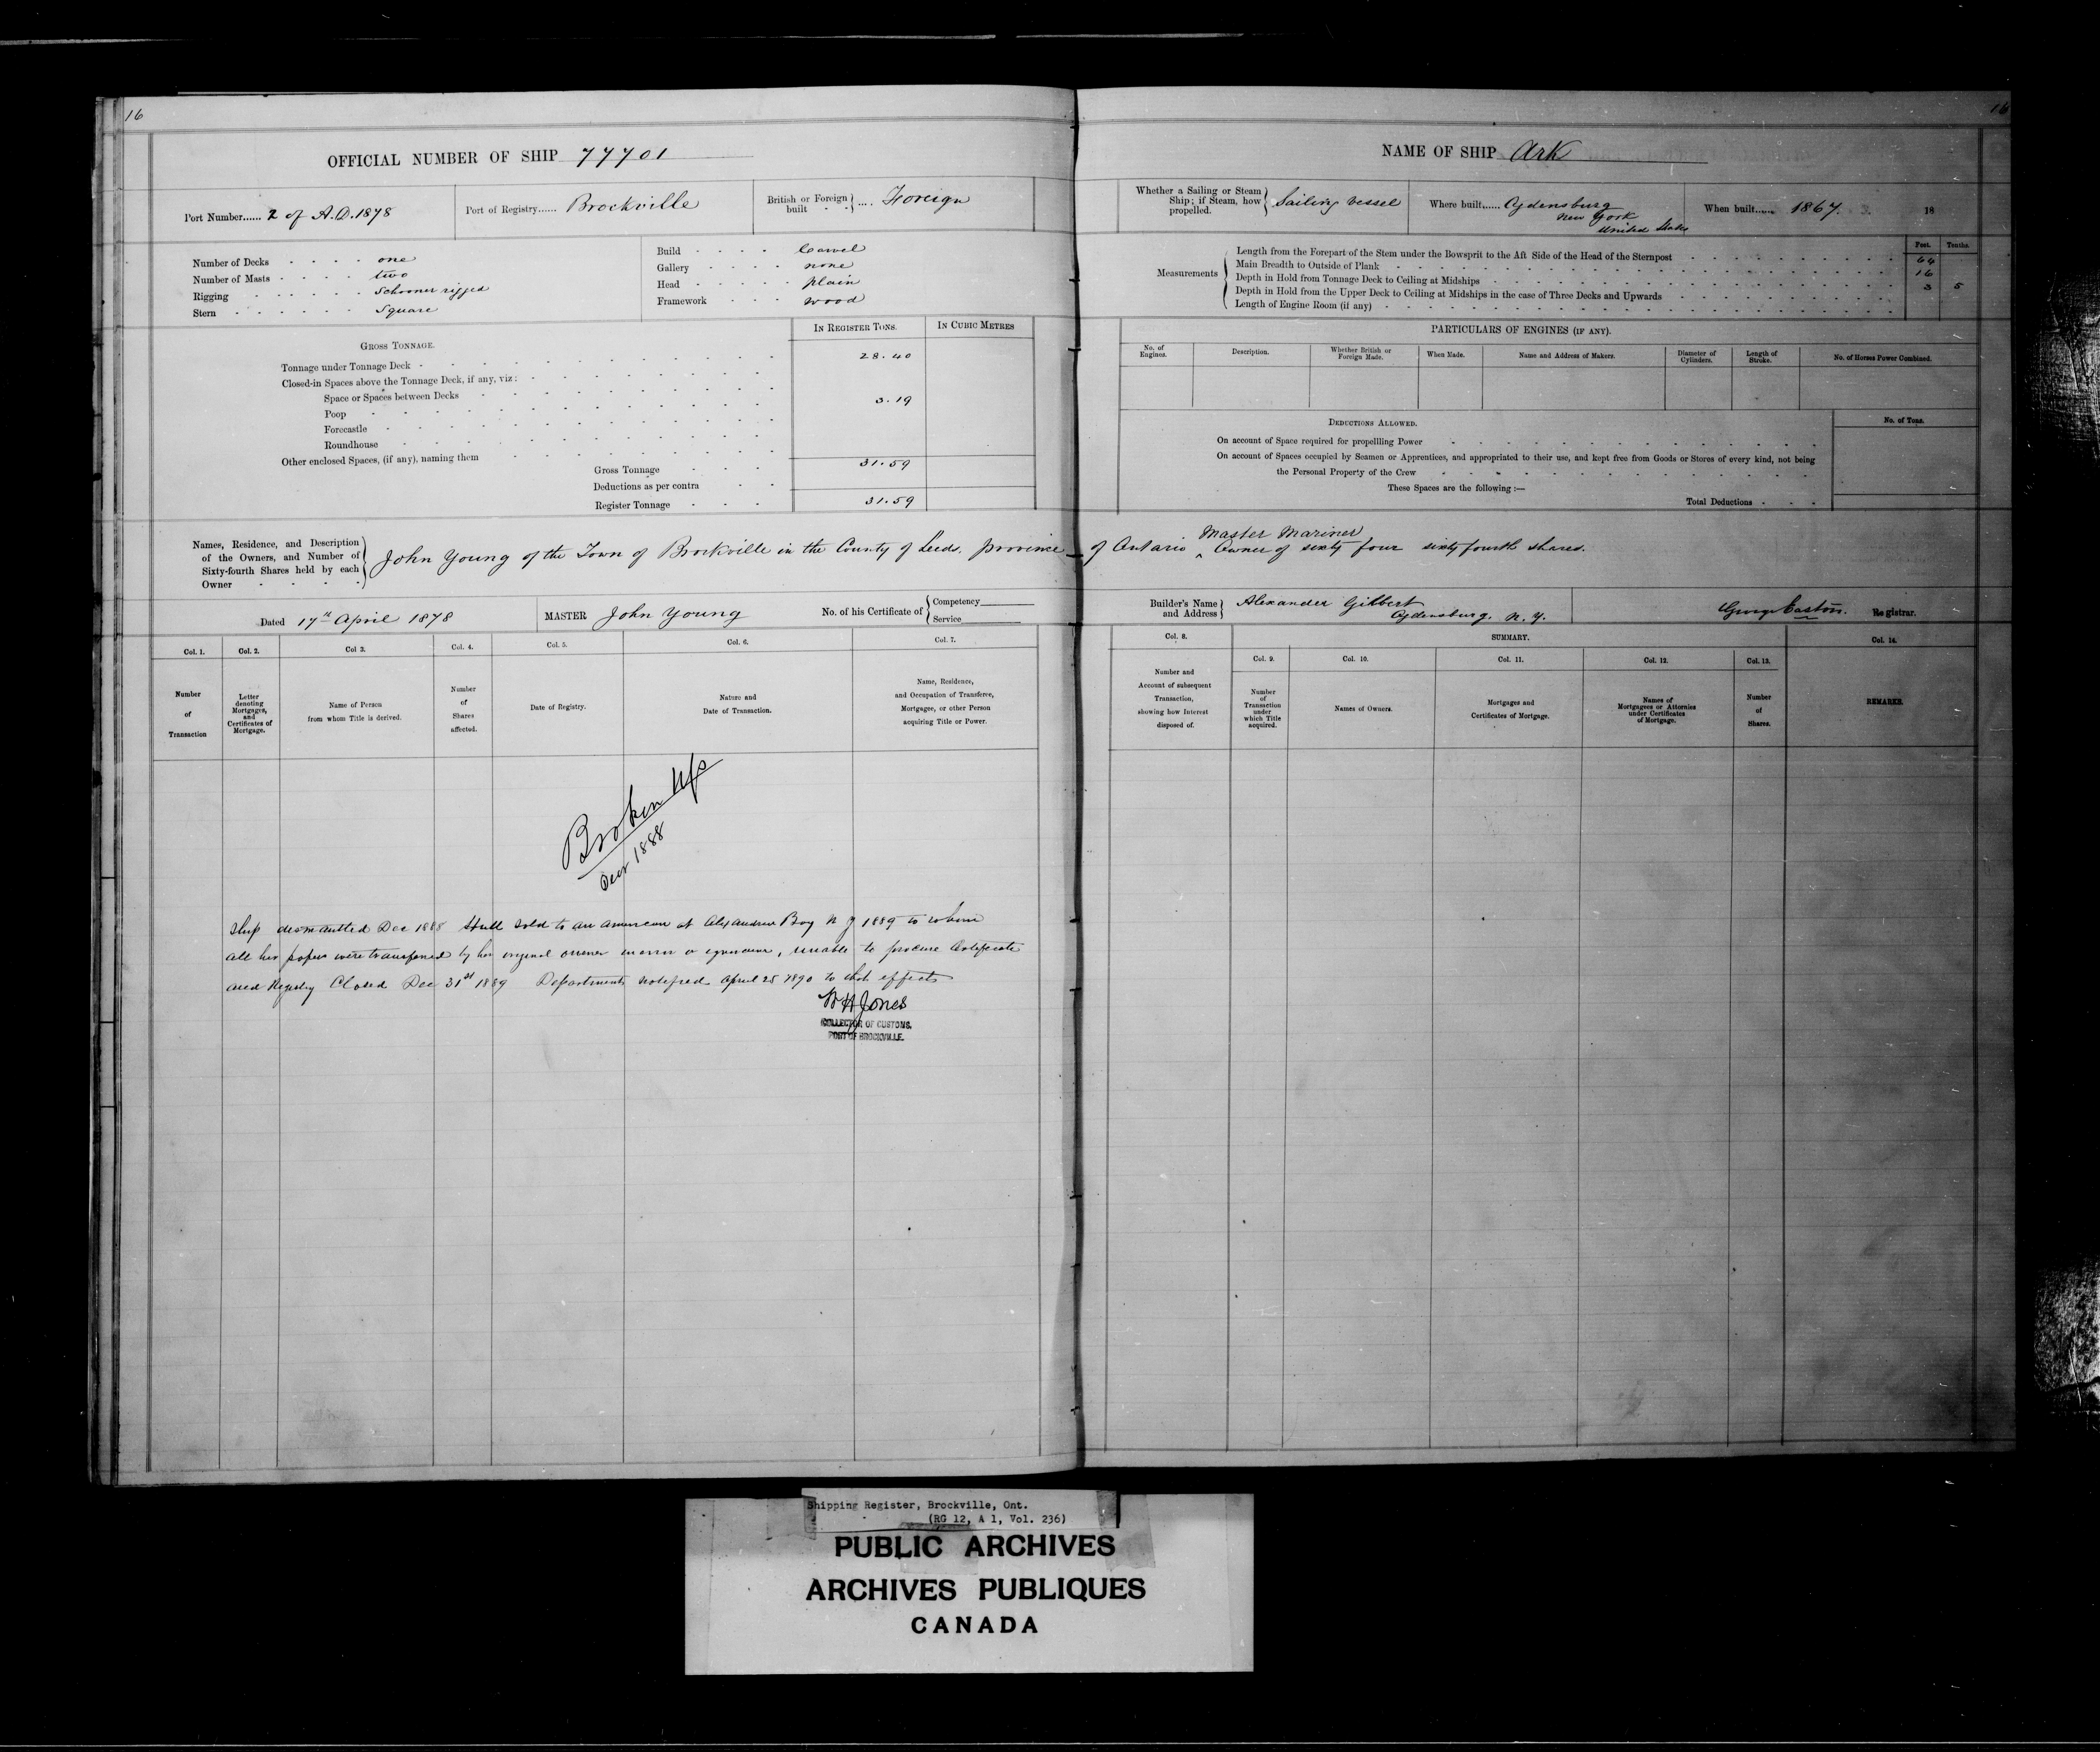 16
OFFICIAL NUMBER OF SHIP 77701
Port Number...... 2 of A.D. 1878
Port of Registry...... Brockville
British or Foreign built .... Foreign
Number of Decks one
Number of Masts two
Rigging Schooner rigged
Stern Square
Build Carvel
Gallery none
Head plain
Framework wood
GROSS TONNAGE.
IN REGISTER TONS.
IN CUBIC METRES
Tonnage under Tonnage Deck 28.40
Closed-in Spaces above the Tonnage Deck, if any, viz:
Space or Spaces between Decks 3.19
Poop
Forecastle
Roundhouse
Other enclosed Spaces, (if any), naming them
Gross Tonnage 31.59
Deductions as per contra
Register Tonnage 31.59
Names, Residence, and Description
of the Owners, and Number of
Sixty-fourth Shares held by each
Owner
John Young of the Town of Brockville in the County of Leeds, province
Dated 17th April 1878
MASTER John Young
No. of his Certificate of
Competency
Service
Col. 1.
Number
of
Transaction
Col. 2.
Letter
denoting
Mortgages,
and
Certificates of
Mortgage.
Col 3.
Name of Person
from whom Title is derived.
Col. 4.
Number
of
Shares
affected.
Col. 5.
Date of Registry.
Col. 6.
Nature and
Date of Transaction.
Col. 7.
Name, Residence,
and Occupation of Transferee,
Mortgagee, or other Person
acquiring Title or Power.
Broken Up
Decr 1888
Ship dismantled Dec 1888 Hull sold to an American at Alexandria Bay N Y 1889 to whom
all her papers were transferred by her original owner in error or ignorance, unable to procure Certificate
and Registry Closed Dec 31st 1889 Department notified April 25 1890 to that effect
W H Jones
COLLECTOR OF CUSTOMS.
PORT OF BROCKVILLE.
16
NAME OF SHIP Ark
Whether a Sailing or Steam
Ship; if Steam, how
propelled.
Sailing vessel
Where built...... Ogdensburg
New York
United States
When built...... 1867.
18
Measurements
Feet. Tenths.
Length from the Forepart of the Stem under the Bowsprit to the Aft Side of the Head of the Sternpost 64
Main Breadth to Outside of Plank 16
Depth in Hold from Tonnage Deck to Ceiling at Midships 3 5
Depth in Hold from the Upper Deck to Ceiling at Midships in the case of Three Decks and Upwards
Length of Engine Room (if any)
PARTICULARS OF ENGINES (IF ANY).
No. of
Engines.
Description.
Whether British or
Foreign Made.
When Made.
Name and Address of Makers.
Diameter of
Cylinders.
Length of
Stroke.
No. of Horses Power Combined.
DEDUCTIONS ALLOWED.
No. of Tons.
On account of Space required for propellling Power
On account of Spaces occupied by Seamen or Apprentices, and appropriated to their use, and kept free from Goods or Stores of every kind, not being
the Personal Property of the Crew
These Spaces are the following :—
Total Deductions
Master Mariner
of Ontario ^ Owner of sixty four sixty fourth shares.
Builder's Name
and Address
Alexander Gilbert
Ogdensburg. N. Y.
George Easton. Registrar.
Col. 8.
Number and
Account of subsequent
Transaction,
showing how Interest
disposed of.
SUMMARY.
Col. 9.
Number
of
Transaction
under
which Title
acquired.
Col. 10.
Names of Owners.
Col. 11.
Mortgages and
Certificates of Mortgage.
Col. 12.
Names of
Mortgagees or Attornies
under Certificates
of Mortgage.
Col. 13.
Number
of
Shares.
Col. 14.
REMARKS.
Shipping Register, Brockville, Ont.
(RG 12, A 1, Vol. 236)
PUBLIC ARCHIVES
ARCHIVES PUBLIQUES
CANADA